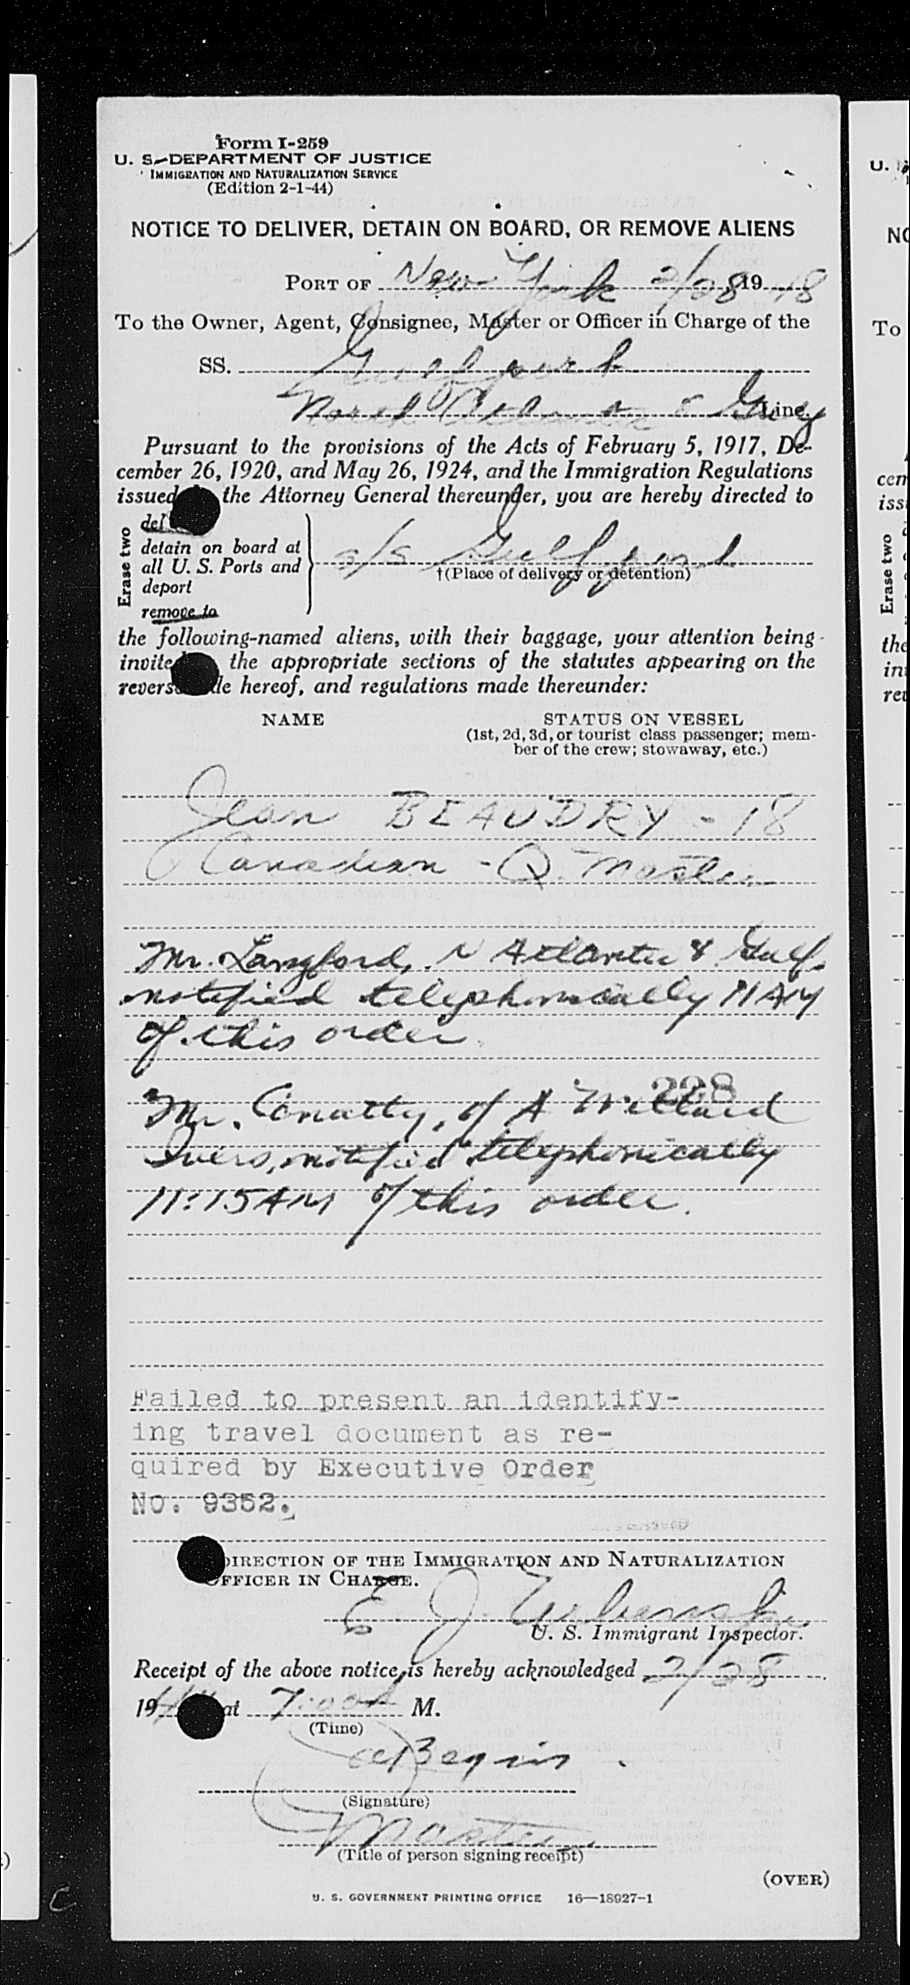 Form I-259
U. S. DEPARTMENT OF JUSTICE
IMMIGRATION AND NATURALIZATION SERVICE
(Edition 2-1-44)
NOTICE TO DELIVER, DETAIN ON BOARD, OR REMOVE ALIENS
PORT OF New York 2/28 19 48
To the Owner, Agent, Consignee, Master or Officer in Charge of the
SS. Gulfport
North Atlantic & Gulf Line
Pursuant to the provisions of the Acts of February 5, 1917, De-
cember 26, 1920, and May 26, 1924, and the Immigration Regulations
issued the Attorney General thereunder, you are hereby directed to
Erase two
del
detain on board at
all U. S. Ports and
deport
remove to
s/s Gulfport
†(Place of delivery or detention)
the following-named aliens, with their baggage, your attention being
invite the appropriate sections of the statutes appearing on the
revers de hereof, and regulations made thereunder:
NAME STATUS ON VESSEL
(1st, 2d, 3d, or tourist class passenger; mem-
ber of the crew; stowaway, etc.)
Jean BEAUDRY - 18
Canadian - Q. Master
Mr. Langford, N Atlantic & Gulf
notified telephonically 11 AM
of this order
228
Mr. Conatty, of A Willard
Ivers, notified telephonically
11:15 AM of this order.
Failed to present an identify-
ing travel document as re-
quired by Executive Order
No. 9352.
DIRECTION OF THE IMMIGRATION AND NATURALIZATION
OFFICER IN CHARGE.
E. J.
U. S. Immigrant Inspector.
Receipt of the above notice is hereby acknowledged 2/28
19 at 7:00 A M.
(Time)
Begin
(Signature)
Master
(Title of person signing receipt)
(OVER)
U. S. GOVERNMENT PRINTING OFFICE 16—18927-1
C
U.
NO
To
cem
iss
Erase two
the
in
rev